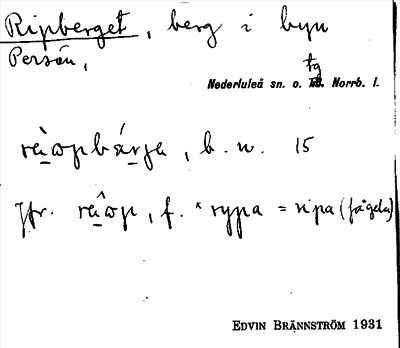 Ripberget, berg i byn
Persön,
tg
Nederluleå sn. o. Norrb. l.
b. n. 15
Jfr. f. * rypa = ripa (fågeln)
EDVIN BRÄNNSTRÖM 1931